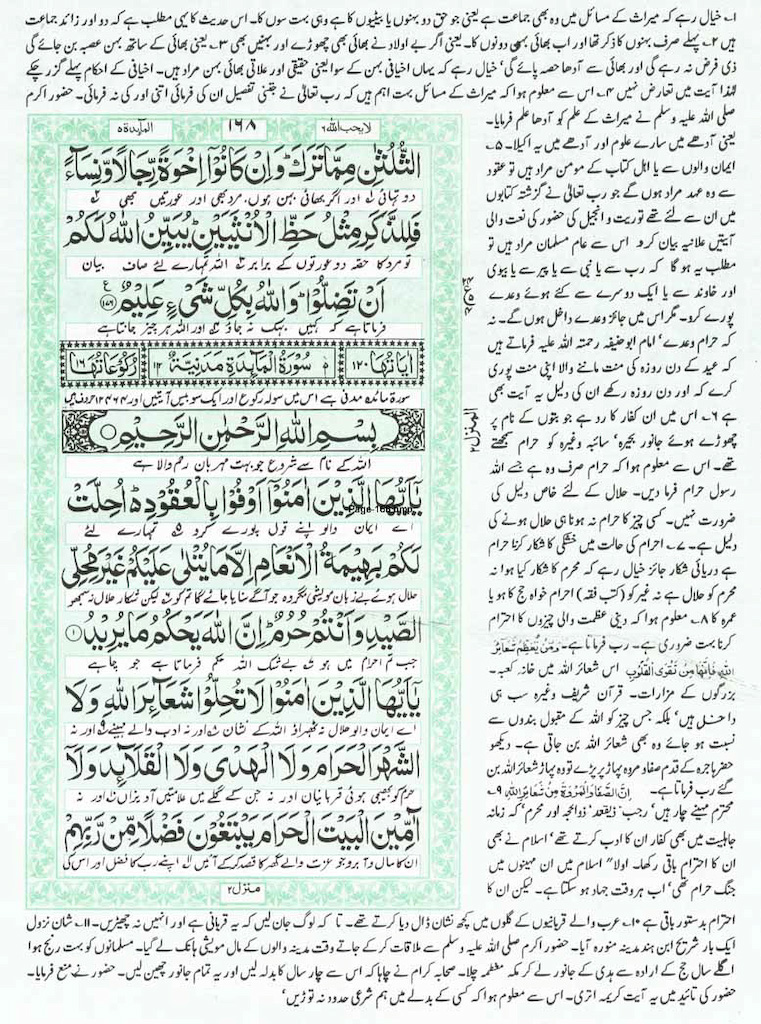 ۱۔ خیال رہے کہ میراث کے مسائل میں دو بھی جماعت ہے یعنی جو حق دو بہنوں یا بیٹیوں کا ہے وہی بہت سوں کا۔ اس حدیث کا یہی مطلب ہے کہ دو اور زائد جماعت
ہیں ۲۔ پہلے صرف بہنوں کا ذکر تھا اور اب بھائی بہن دونوں کا۔ یعنی اگر بے اولاد نے بھائی بھی چھوڑے اور بہنیں بھی ۳۔ یعنی بھائی کے ساتھ بہن عصبہ بن جائے گی
ذی فرض نہ رہے گی اور بھائی سے آدھا حصہ پائے گی' خیال رہے کہ یہاں اخیافی بہن کے سوا یعنی حقیقی اور علاتی بھائی بہن مراد ہیں۔ اخیافی کے احکام پہلے گزر چکے
لہٰذا آیت میں تعارض نہیں ۴۔ اس سے معلوم ہوا کہ میراث کے مسائل بہت اہم ہیں کہ رب تعالیٰ نے جتنی تفصیل ان کی فرمائی اتنی اور کی نہ فرمائی۔ حضور اکرم
لا یحب اللہ ۶
۱۶۸
المآئدۃ ۵
الثُّلُثٰنِ مِمَّا تَرَكَ ؕ وَاِنْ كَانُوْۤا اِخْوَةً رِّجَالًا وَّنِسَآءً
دو تہائی اور اگر بھائی بہن ہوں، مرد بھی اور عورتیں بھی
فَلِلذَّكَرِ مِثْلُ حَظِّ الْاُنْثَيَيْنِ ؕ يُبَيِّنُ اللّٰهُ لَكُمْ
تو مرد کا حصہ دو عورتوں کے برابر اللہ تمہارے لئے صاف بیان
اَنْ تَضِلُّوْا ؕ وَاللّٰهُ بِكُلِّ شَيْءٍ عَلِيْمٌ ﴿۱۷۶﴾
فرماتا ہے کہ کہیں بہک نہ جاؤ اور اللہ ہر چیز جانتا ہے
اٰيَاتُهَا ۱۲۰ سُوْرَةُ الْمَآئِدَةِ مَدَنِيَّةٌ ۱۱۲ رُكُوْعَاتُهَا ۱۶
سورۃ مائدہ مدنی ہے اس میں سولہ رکوع اور ایک سو بیس آیتیں اور ۱۲۴۶۴ حروف ہیں
بِسْمِ اللّٰهِ الرَّحْمٰنِ الرَّحِيْمِ
اللہ کے نام سے شروع جو بہت مہربان رحم والا ہے
يٰۤاَيُّهَا الَّذِيْنَ اٰمَنُوْۤا اَوْفُوْا بِالْعُقُوْدِ ؕ اُحِلَّتْ
Page-168.bmp
اے ایمان والو اپنے قول پورے کرو تمہارے لئے
لَكُمْ بَهِيْمَةُ الْاَنْعَامِ اِلَّا مَا يُتْلٰى عَلَيْكُمْ غَيْرَ مُحِلِّي
حلال ہوئے بے زبان مویشی مگر وہ جو آگے سنایا جائے گا تم کو لیکن شکار حلال نہ سمجھو
الصَّيْدِ وَاَنْتُمْ حُرُمٌ ؕ اِنَّ اللّٰهَ يَحْكُمُ مَا يُرِيْدُ ﴿۱﴾
جب تم احرام میں ہو بے شک اللہ حکم فرماتا ہے جو چاہے
يٰۤاَيُّهَا الَّذِيْنَ اٰمَنُوْا لَا تُحِلُّوْا شَعَآئِرَ اللّٰهِ وَلَا
اے ایمان والو حلال نہ ٹھہرا لو اللہ کے نشان اور نہ ادب والے مہینے اور نہ
الشَّهْرَ الْحَرَامَ وَلَا الْهَدْيَ وَلَا الْقَلَآئِدَ وَلَاۤ
حرم کو بھیجی ہوئی قربانیاں اور نہ جن کے گلے میں علامتیں آویزاں اور نہ
آٰمِّيْنَ الْبَيْتَ الْحَرَامَ يَبْتَغُوْنَ فَضْلًا مِّنْ رَّبِّهِمْ
ان کا مال و آبرو جو عزت والے گھر کا قصد کر کے آئیں اپنے رب کا فضل اور اس کی
منزل ۲
المنزل ۲
صلی اللہ علیہ وسلم نے میراث کے علم کو آدھا علم فرمایا۔
یعنی آدھے میں سارے علوم اور آدھے میں یہ اکیلا۔ ۵۔
ایمان والوں سے یا اہل کتاب کے مومن مراد ہیں تو عقود
سے وہ عہد مراد ہوں گے جو رب تعالیٰ نے گزشتہ کتابوں
میں ان سے لئے تھے توریت و انجیل کی حضور کی نعت والی
آیتیں علانیہ بیان کرو۔ اس سے عام مسلمان مراد ہیں تو
مطلب یہ ہو گا کہ رب سے یا نبی سے یا پیر سے یا بیوی
اور خاوند سے یا ایک دوسرے سے کئے ہوئے وعدے
پورے کرو۔ مگر اس میں جائز وعدے داخل ہوں گے۔ نہ
کہ حرام وعدے' امام ابوحنیفہ رحمتہ اللہ علیہ فرماتے ہیں
کہ عید کے دن روزہ کی منت ماننے والا اپنی منت پوری
کرے کہ اور دن روزہ رکھے ان کی دلیل یہ آیت بھی
ہے ۶۔ اس میں ان کفار کا رد ہے جو بتوں کے نام پر
چھوڑے ہوئے جانور بحیرہ' سائبہ وغیرہ کو حرام سمجھتے
تھے۔ اس سے معلوم ہوا کہ حرام صرف وہ ہے جسے اللہ
رسول حرام فرما دیں۔ حلال کے لئے خاص دلیل کی
ضرورت نہیں۔ کسی چیز کا حرام نہ ہونا ہی حلال ہونے کی
دلیل ہے۔ ۷۔ احرام کی حالت میں خشکی کا شکار کرنا حرام
ہے دریائی شکار جائز خیال رہے کہ محرم کا شکار کیا ہوا نہ
محرم کو حلال ہے نہ غیر کو (کتب فقہ) احرام خواہ حج کا ہو یا
عمرہ کا ۸۔ معلوم ہوا کہ دینی عظمت والی چیزوں کا احترام
کرنا بہت ضروری ہے۔ رب فرماتا ہے۔ وَمَنْ يُّعَظِّمْ شَعَآئِرَ
اللّٰهِ فَاِنَّهَا مِنْ تَقْوَى الْقُلُوْبِ اس شعائر اللہ میں خانہ کعبہ۔
بزرگوں کے مزارات۔ قرآن شریف وغیرہ سب ہی
داخل ہیں' بلکہ جس چیز کو اللہ کے مقبول بندوں سے
نسبت ہو جائے وہ بھی شعائر اللہ بن جاتی ہے۔ دیکھو
حضرت ہاجرہ کے قدم صفا و مروہ پہاڑ پر پڑے تو وہ پہاڑ شعائر اللہ بن
گئے رب فرماتا ہے۔ اِنَّ الصَّفَا وَالْمَرْوَةَ مِنْ شَعَآئِرِ اللّٰهِ ۹۔
محترم مہینے چار ہیں' رجب' ذیقعد' ذوالحجہ اور محرم' کہ زمانہ
جاہلیت میں بھی کفار ان کا ادب کرتے تھے' اسلام نے بھی
ان کا احترام باقی رکھا۔ اولاً" اسلام میں ان مہینوں میں
جنگ حرام تھی' اب ہر وقت جہاد ہو سکتا ہے۔ لیکن ان کا
احترام بدستور باقی ہے ۱۰۔ عرب والے قربانیوں کے گلوں میں کچھ نشان ڈال دیا کرتے تھے۔ تا کہ لوگ جان لیں کہ یہ قربانی ہے اور انہیں نہ چھیڑیں۔ ۱۱۔ شان نزول
ایک بار شریح ابن ہند مدینہ منورہ آیا۔ حضور اکرم صلی اللہ علیہ وسلم سے ملاقات کر کے جاتے وقت مدینہ والوں کے مال مویشی ہانک لے گیا۔ مسلمانوں کو بہت رنج ہوا
اگلے سال حج کے ارادہ سے ہدی کے جانور لے کر مکہ معظمہ چلا۔ صحابہ کرام نے چاہا کہ اس سے چار سال کا بدلہ لیں اور یہ تمام جانور چھین لیں۔ حضور نے منع فرمایا۔
حضور کی تائید میں یہ آیت کریمہ اتری۔ اس سے معلوم ہوا کہ کسی کے بدلے میں ہم شرعی حدود نہ توڑیں'